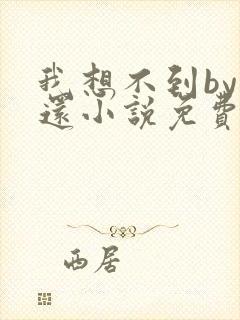 我想不到by
還小說免費
西居